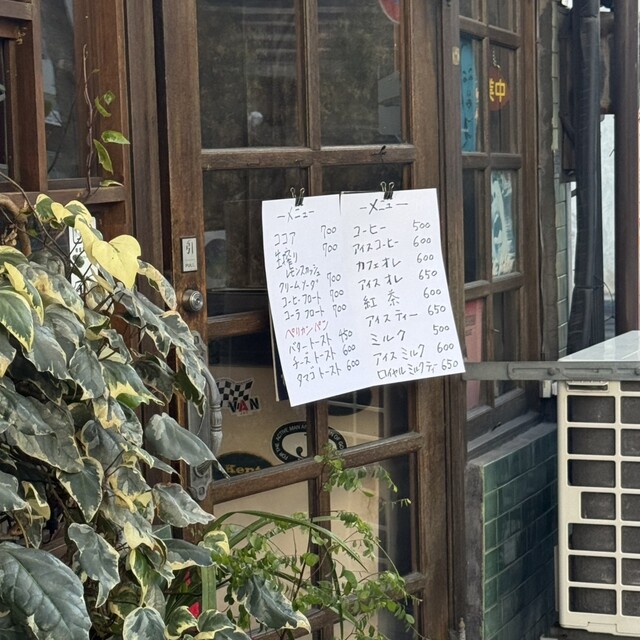 ーメニュー
ココア 700
生搾り 700
レモンスカッシュ
クリームソーダ 700
コーヒーフロート 700
コーラフロート 700
ペリカンパン
バタートースト 450
チーズトースト 600
タマゴトースト 600
ーメニュー
コーヒー 500
アイスコーヒー 600
カフェオレ 600
アイスオレ 650
紅茶 600
アイスティー 650
ミルク 500
アイスミルク 600
ロイヤルミルクティ 650
引
VAN
Kent
中